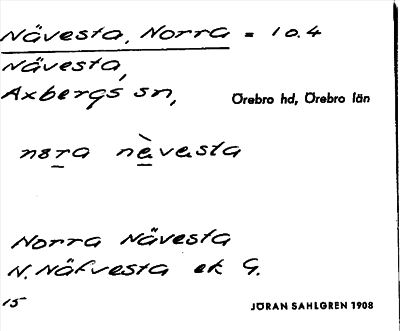 Nävesta, Norra = 10.4
Nävesta,
Axbergs sn, Örebro hd, Örebro län
nɜra nèvasta
Norra Nävesta
N. Näfvesta ek G.
15 JÖRAN SAHLGREN 1908